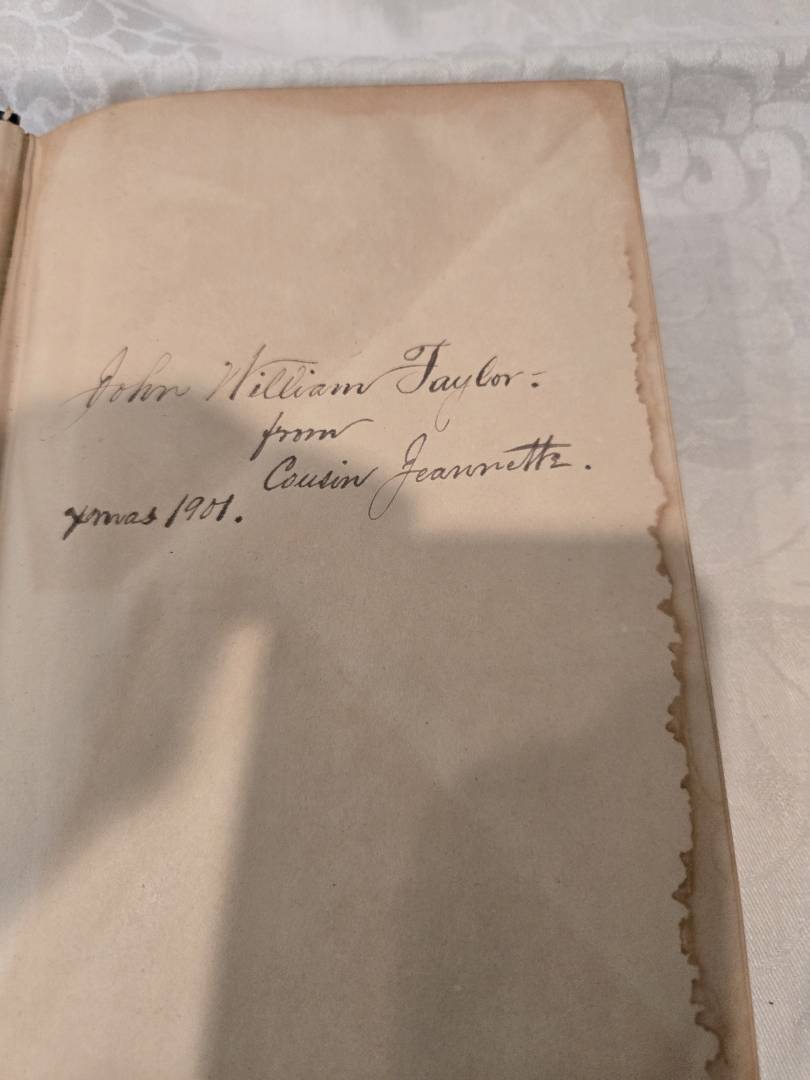 John William Taylor.
from
Cousin Jeannette.
xmas 1901.